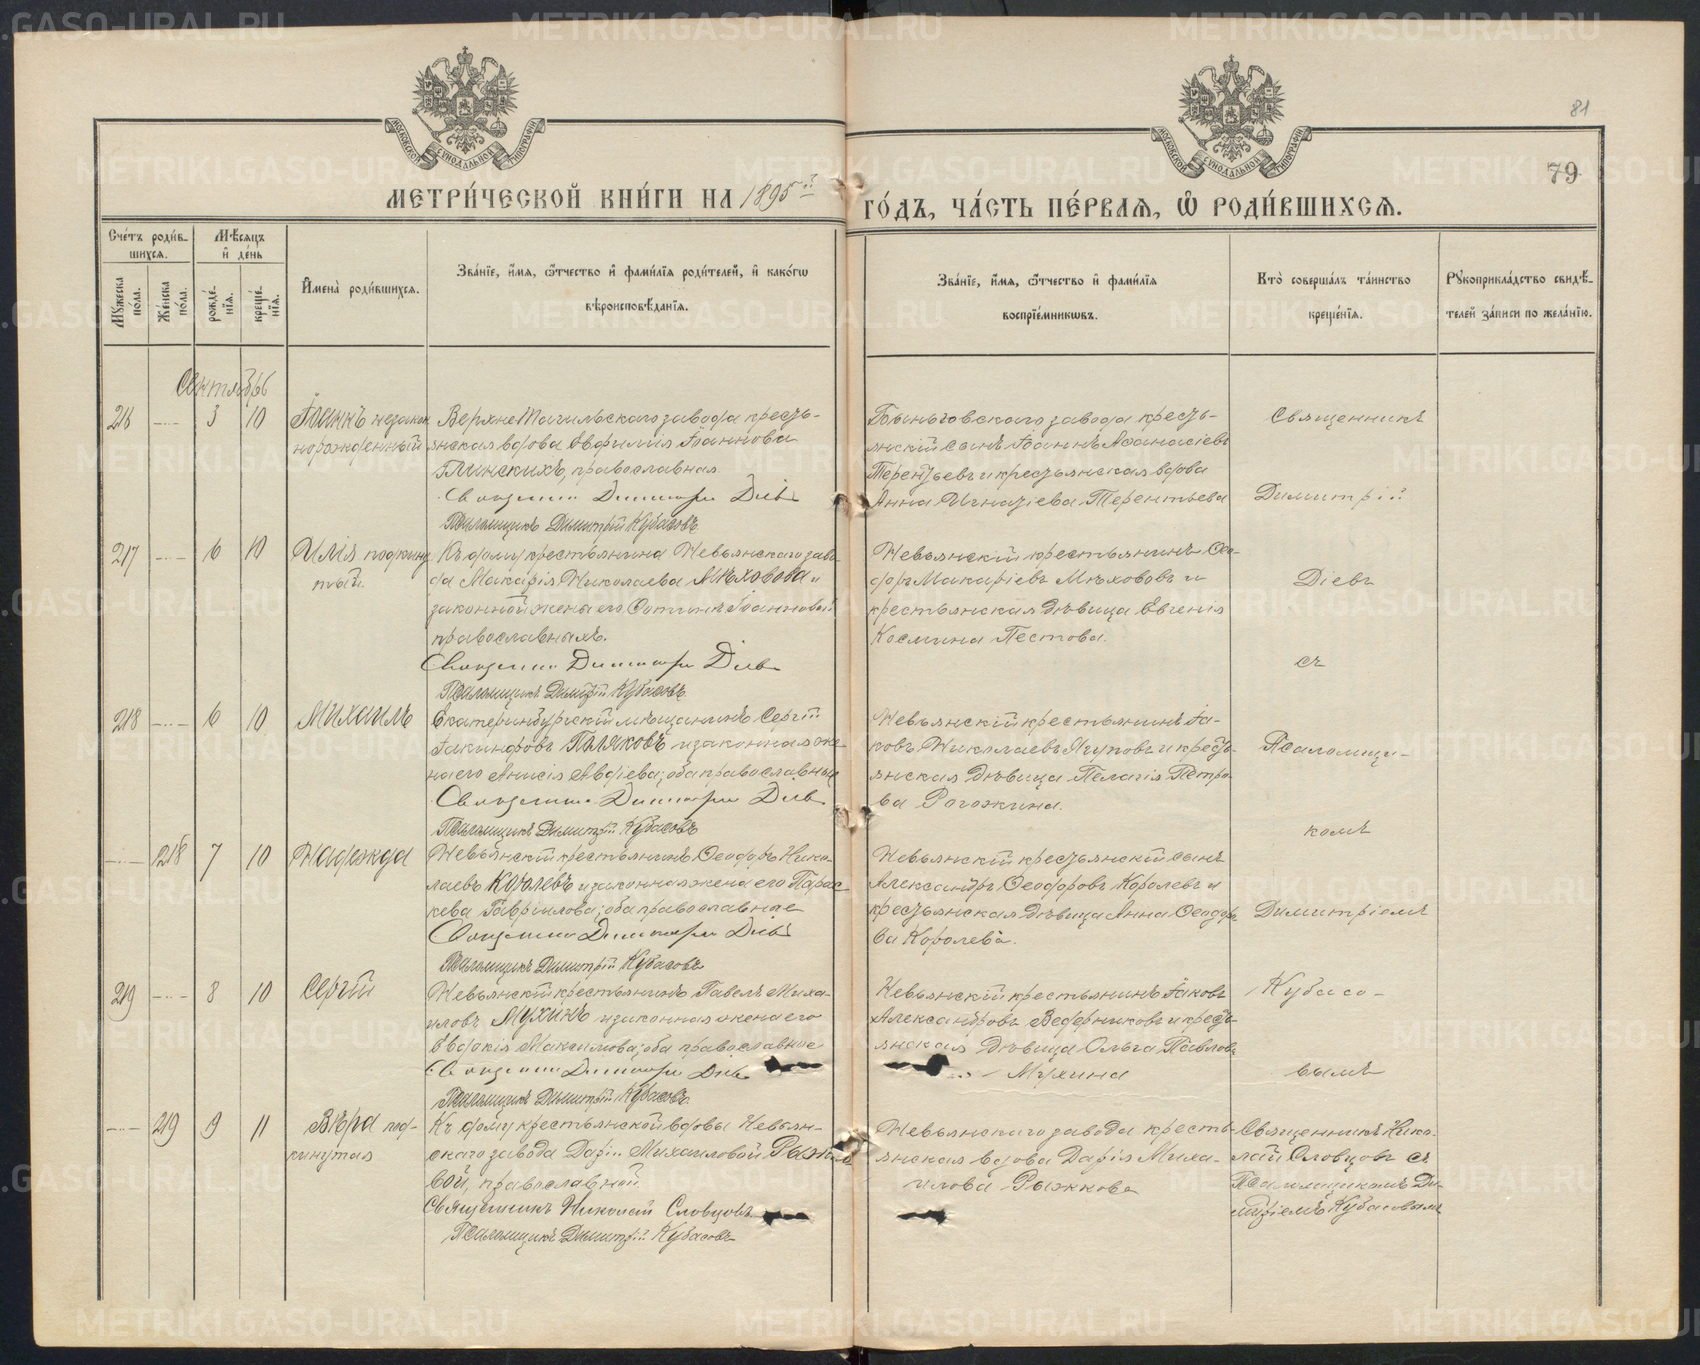 81
79
МЕТРИ́ЧЕСКОЙ КНИ́ГИ НА 1895й ГО́ДЪ, ЧА́СТЬ ПЕ́РВАѦ, Ѽ РОДИ́ВШИХСѦ.
Сче́тъ роди́в-
шихсѧ.
Мꙋжеска по́ла.
Же́нска по́ла.
Мѣ́сѧцъ
и҆ де́нь
рожде́-
нїѧ.
креще́-
нїѧ.
И҆мена̀ роди́вшихсѧ.
Зва́нїе, и҆́мѧ, ѻ҆́тчество и҆ фами́лїѧ роди́телей, и҆ како́гѡ
вѣроисповѣ́данїѧ.
Зва́нїе, и҆́мѧ, ѻ҆́тчество и҆ фами́лїѧ
воспрїе́мникѡвъ.
Кто̀ соверша́лъ та́инство
креще́нїѧ.
Рꙋкоприкла́дство свидѣ́-
телей за́писи по жела́нїю.
Сентябрь
216 3 10 Іоаннъ незакон
норожденный
Верхне Тагильскаго завода кресть-
янская вдова Евфимия Іоаннова
Глинскихъ, православная
Священникъ Димитрій Діевъ
Псаломщикъ Димитрій Кубасовъ
Быньговскаго завода кресть-
янскій сынъ Іоаннъ Аѳанасіевъ
Терентьевъ и крестьянская вдова
Анна Игнатіева Терентьева
Священникъ
Димитрій
217 6 10 Илія подкину
тый
Къ дому крестьянина Невьянскаго заво
да Макарія Николаева Мѣховова и
законной жены его Фотиніи Іоанновой
православныхъ.
Священникъ Димитрій Діевъ
Псаломщикъ Димитрій Кубасовъ
Невьянскій крестьянинъ Ѳео-
доръ Макаріевъ Мѣхововъ и
крестьянская дѣвица Евгенія
Космина Пестова.
Діевъ
съ
218 6 10 Михаилъ
Екатеринбургскій мѣщанинъ Сергій
Іакинфовъ Поляковъ и законная же
на его Анисія Авдіева; оба православные
Священникъ Димитрій Діевъ
Псаломщикъ Димитрій Кубасовъ
Невьянскій крестьянинъ Іа-
ковъ Николаевъ Ягуповъ и кресть-
янская дѣвица Пелагія Петро
ва Рогожина.
Псаломщи-
комъ
218 7 10 Надежда
Невьянскій крестьянинъ Ѳеодоръ Нико-
лаевъ Королевъ и законная жена его Парас-
кева Гавриилова; оба православные
Священникъ Димитрій Діевъ
Псаломщикъ Димитрій Кубасовъ
Невьянскій крестьянскій сынъ
Александръ Ѳеодоровъ Королевъ и
крестьянская дѣвица Анна Ѳеодоро
ва Королева.
Димитріемъ
219 8 10 Сергій
Невьянскій крестьянинъ Павелъ Миха-
иловъ Мухинъ и законная жена его
Евдокія Максимова; оба православные
Священникъ Димитрій Діевъ
Псаломщикъ Димитрій Кубасовъ
Невьянскій крестьянинъ Іаковъ
Александровъ Ведерниковъ и кресть-
янская дѣвица Ольга Павлов
Мухина
Кубасо-
вымъ
219 9 11 Вѣра под-
кинутая
Къ дому крестьянской вдовы Невьян-
скаго завода Даріи Михаиловой Рыжко
вой, православной
Священникъ Николай Словцовъ
Псаломщикъ Димитрій Кубасовъ
Невьянскаго завода кресть-
янская вдова Дарія Миха-
илова Рыжкова
Священникъ Нико-
лай Словцовъ съ
Псаломщикомъ Ди-
митріемъ Кубасовымъ